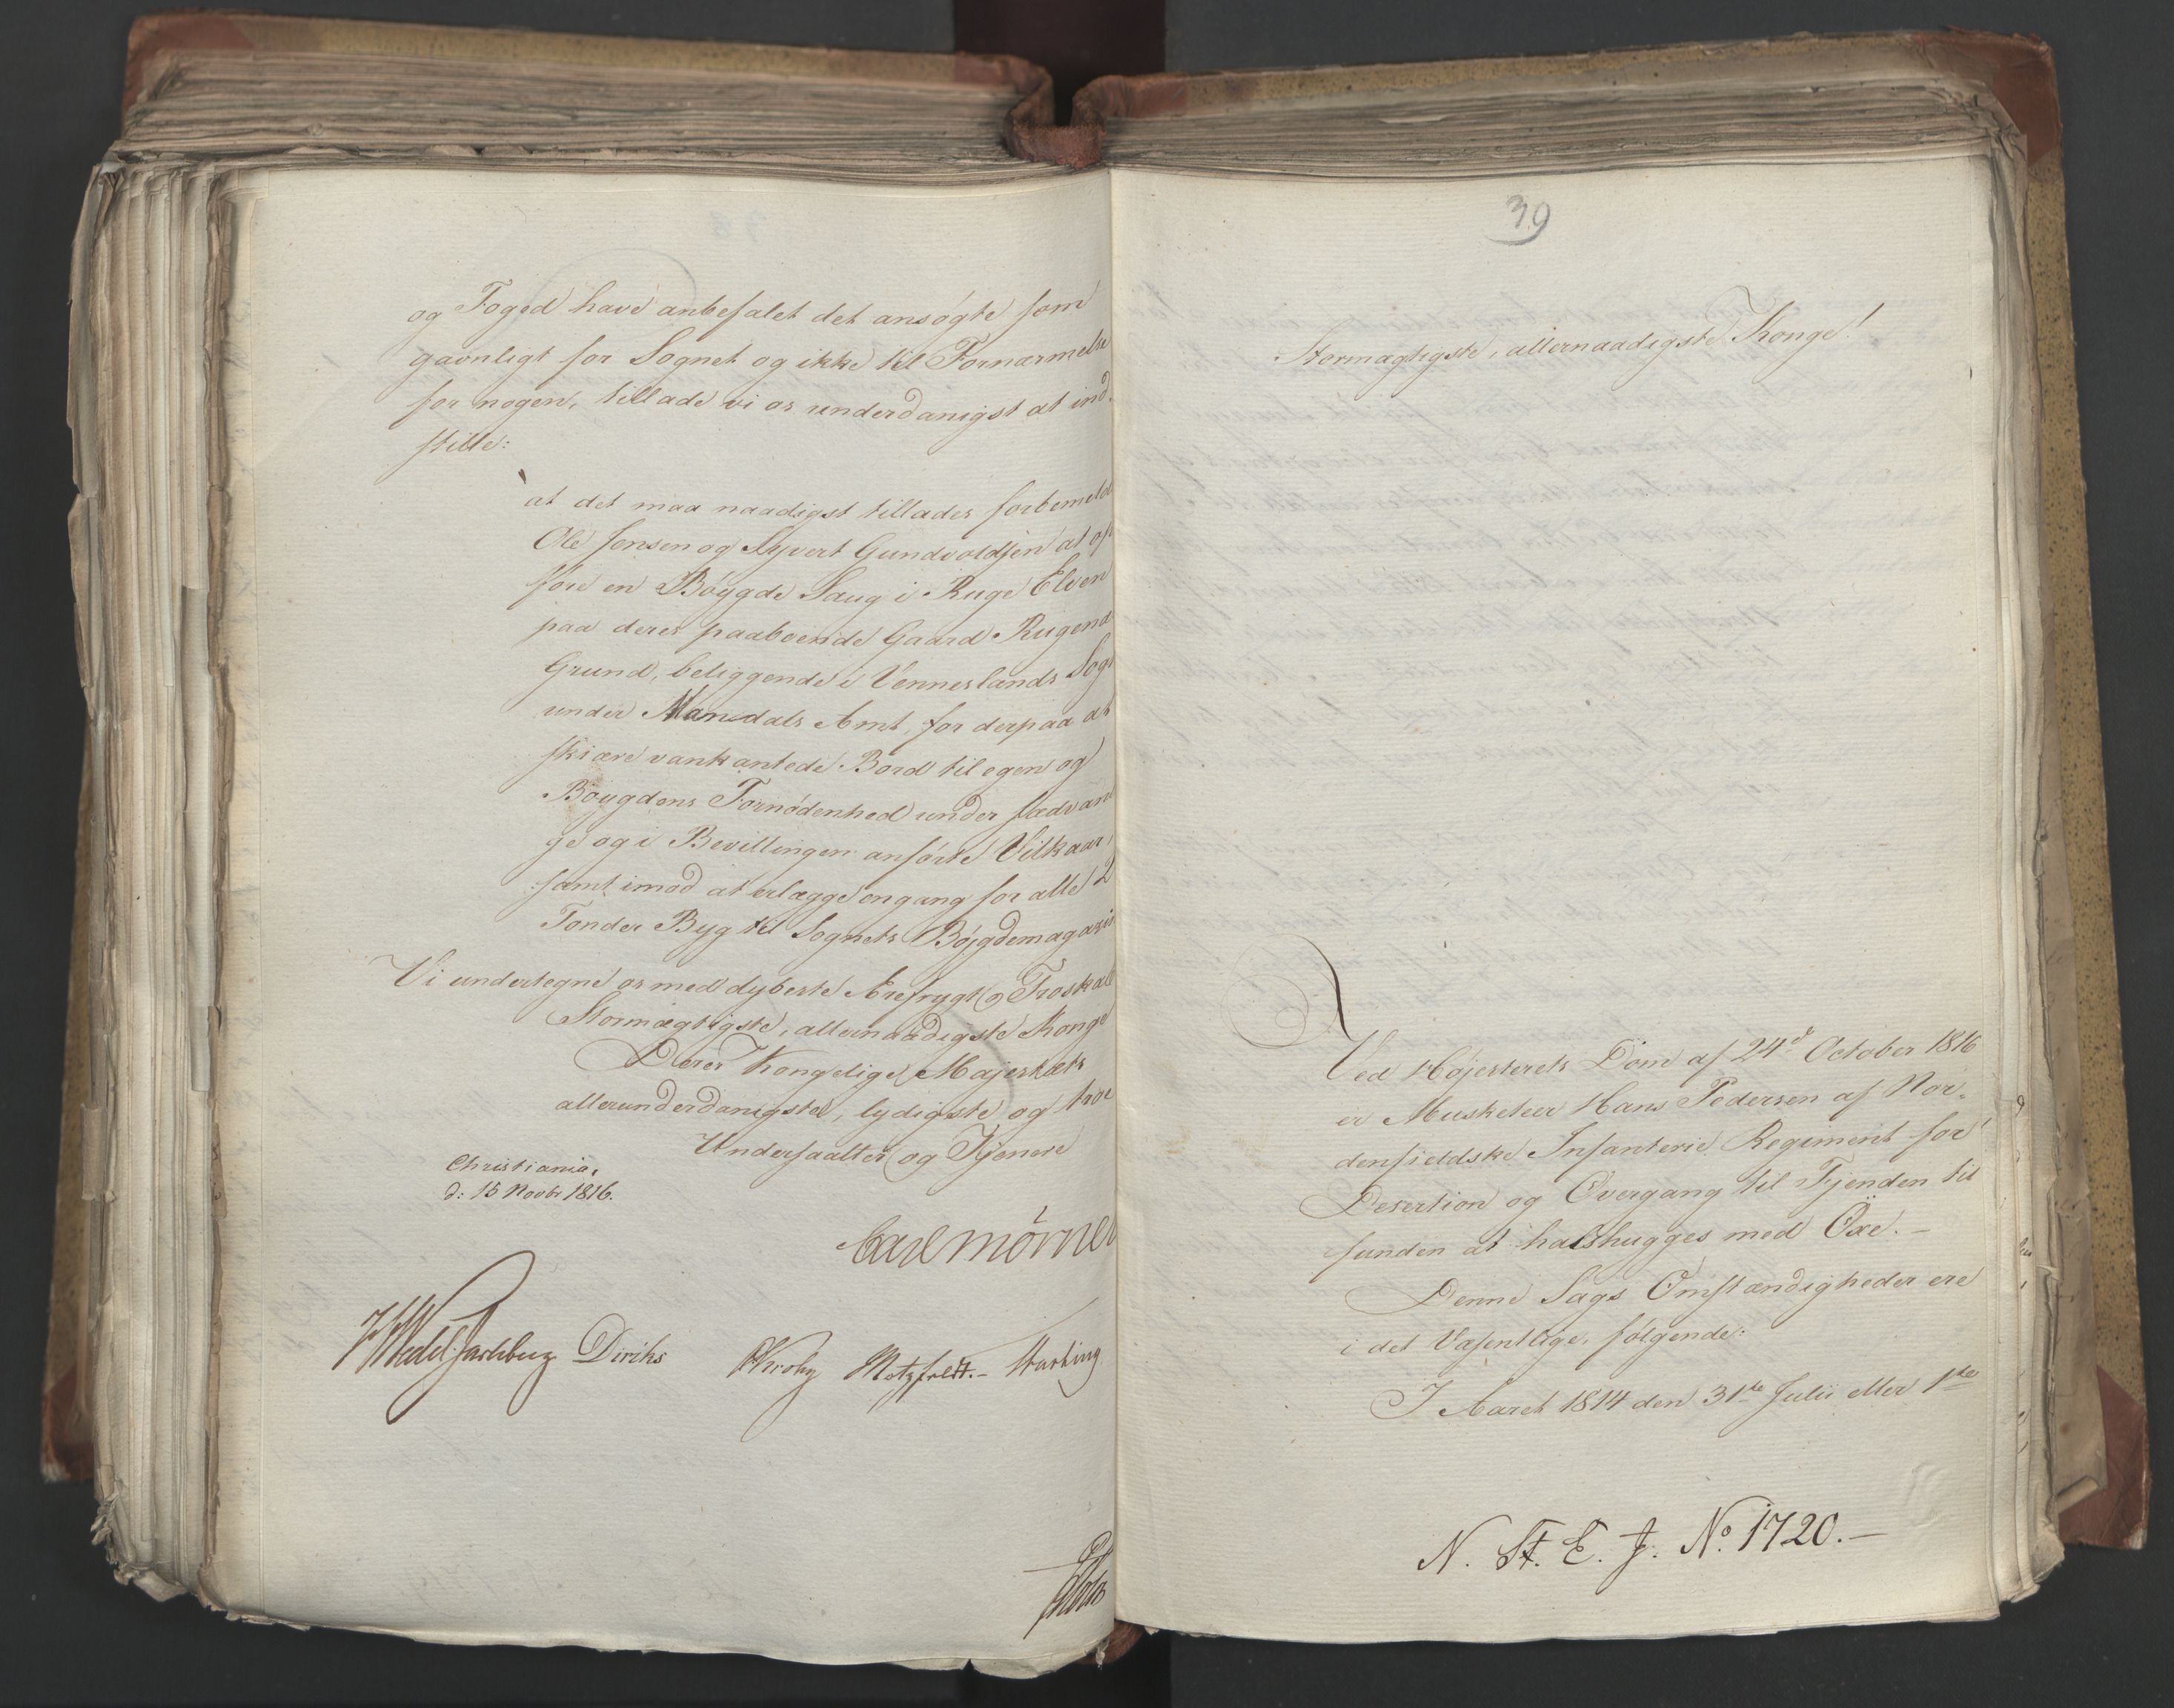 og Foged have anbefalet det ansøgte som
gavnligt for Sognet og ikke til Fornærmelse
for nogen, tillade vi os underdanigst at ind-
stille:
at det maa naadigst tillades forbemeldte
Ole Jensen og Syvert Gundvoldsen at op-
føre en Bøygde Saug i Ruge Elven
paa deres paaboende Gaard Rugend
Grund, beliggende i Venneslands Sogn
under Mandals Amt, for derpaa at
skiære vankantede Bord til egen og
Bøygdens Fornødenhed under sædvan-
ge og i Bevillingen anførte Vilkaar,
samt imod at erlægge engang for alle 2
Tønder Byg til Sognets Bøjgdemagazin
Vi undertegne os med dybeste Ærefrygt og Troskab
Stormægtigste, allernaadigste Konge
Deres Kongelige Majestæts
allerunderdanigste, lydigste og troe
Undersaatter og Tjenere
Christiania,
d: 15 Novbr 1816.
Carl Mörner
Wedel Jarlsberg Diriks Krohg Motzfeldt.- Harting
39
Stormægtigste, allernaadigste Konge!
Ved Højesterets Dom af 24d October 1816
er Musketeer Hans Pedersen af Nor-
denfieldske Infanterie Regiment for
Desertion og Overgang til Fjenden til
funden at halshugges med Öxe. -
Denne Sags Omstændigheder ere
i det Væsentlige, følgende:
I Aaret 1814 den 31te Julii eller 1ste
N. St. E. J. No. 1720. -